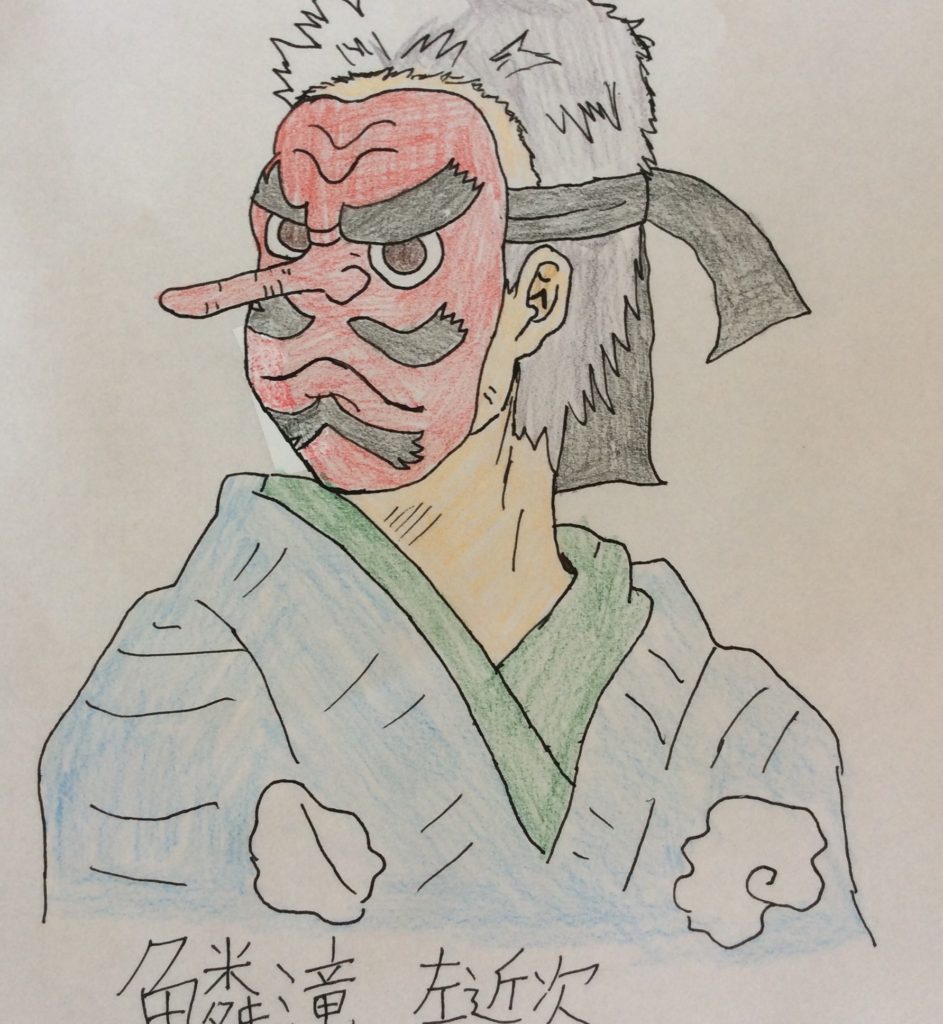 鱗滝 左近次